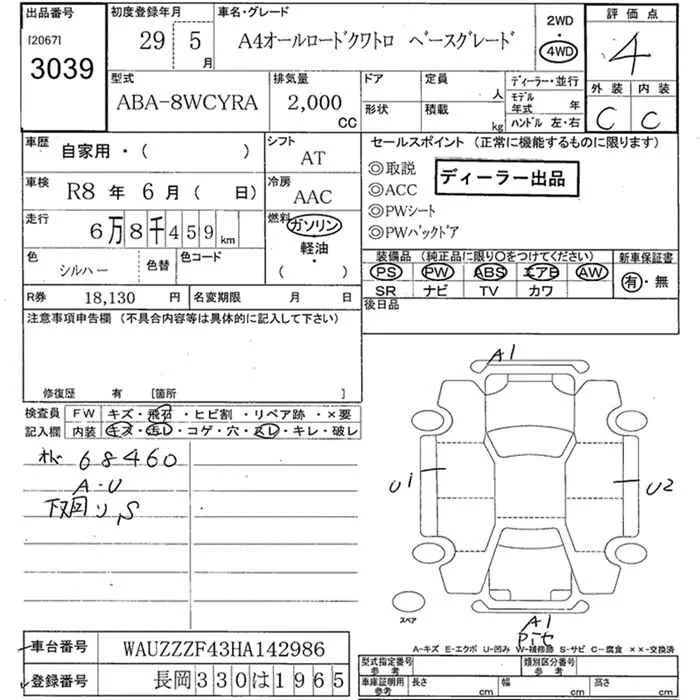 出品番号
[2067]
3039
初度登録年月
29 5
月
車名・グレード
A4オールロードクワトロ ベースグレード
2WD
・
4WD
評価点
4
外装 内装
C C
型式
ABA-8WCYRA
排気量
2,000
CC
ドア
定員
人
形状
積載
kg
ディーラー・並行
モデル
年式 年
ハンドル 左・右
車歴
自家用・( )
シフト
AT
車検
R8 年 6 月 ( 日)
冷房
AAC
走行
6万8千459 km
燃料
ガソリン
・
軽油
・
( )
色
シルバー
色替
色コード
R券 18,130 円
名変期限 月 日
セールスポイント (正常に機能するものに限ります)
◎取説
◎ACC
◎PWシート
◎PWバックドア
ディーラー出品
装備品 (純正品に限り○をつけてください)
PS PW ABS エアB AW
SR ナビ TV カワ
新車保証書
有・無
後日品
注意事項申告欄 (不具合内容等は具体的に記入して下さい)
修復歴 有 [箇所 ]
検査員
記入欄
FW キズ・飛石・ヒビ割・リペア跡・×要
内装 キズ・汚レ・コゲ・穴・スレ・キレ・破レ
68460
A・U
下回り S
A1
U1
U2
A1
Pit
スペア
A-キズ E-エクボ U-凹み W-補修跡 S-サビ C-腐食 ××-交換済
車台番号 WAUZZZF43HA142986
登録番号 長岡330は1965
型式指定番号
参考
類別区分番号
参考
車庫証明用
参考
長さ cm
幅 cm
高さ cm